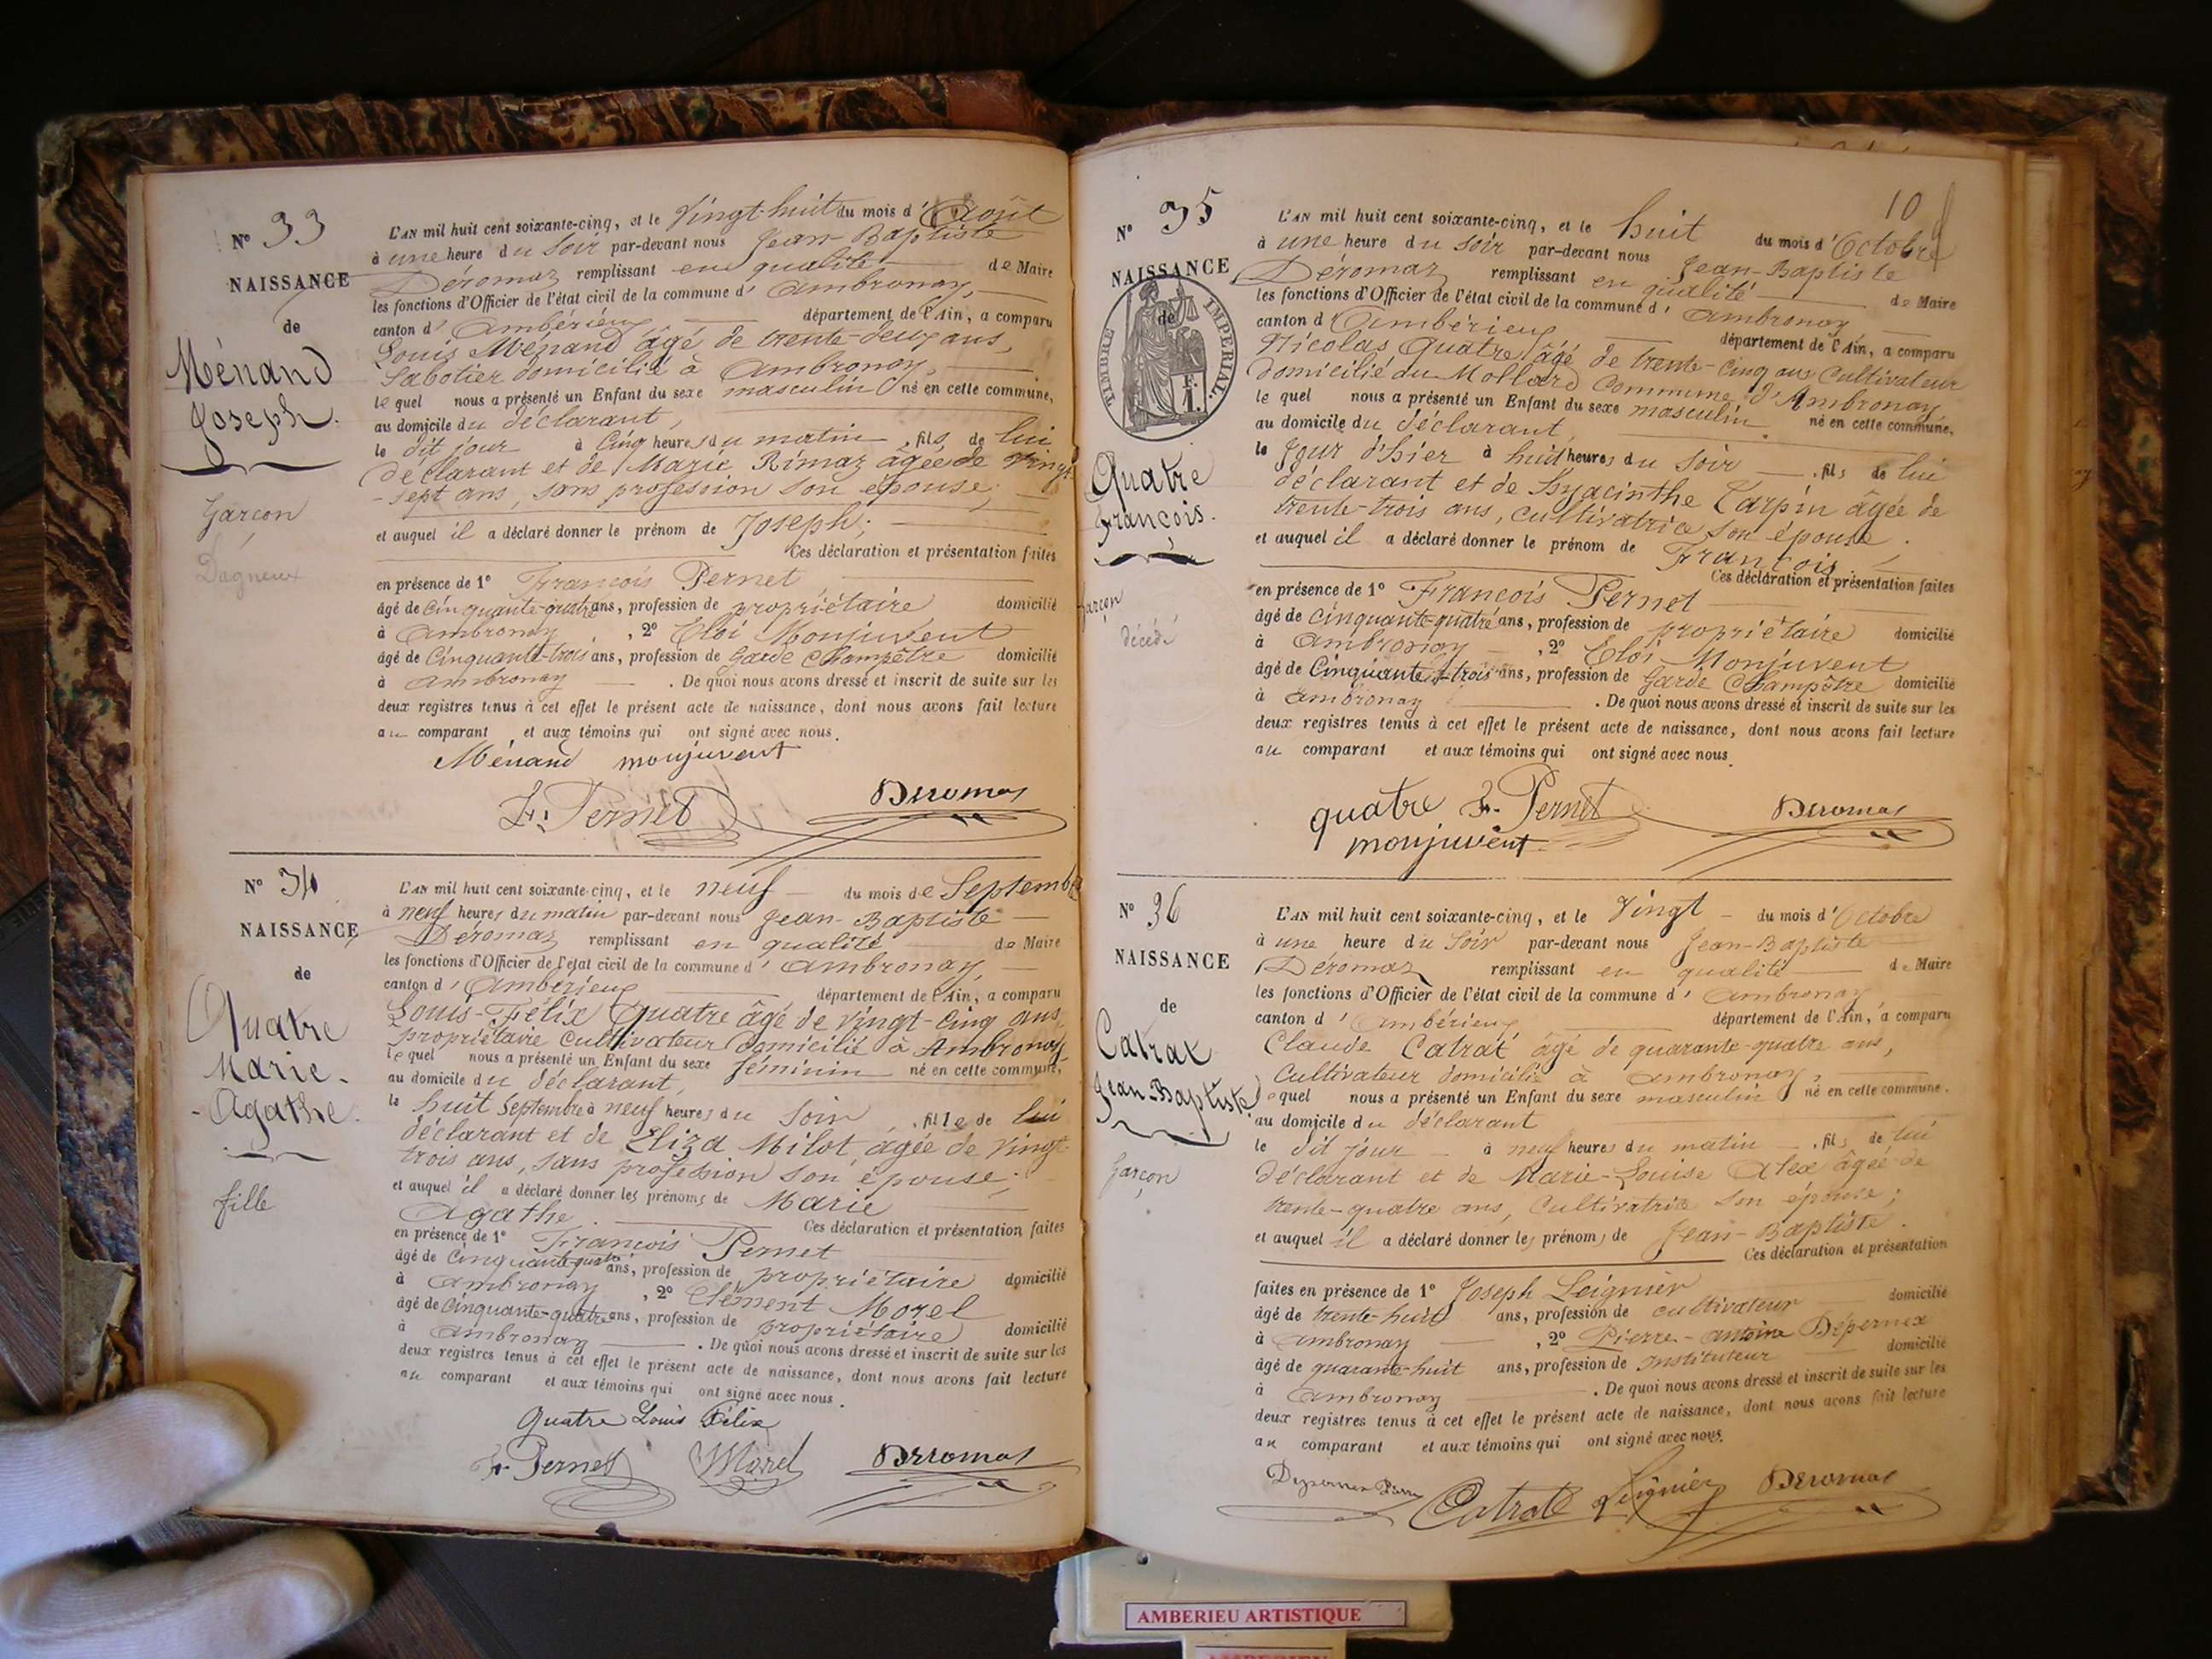 N° 33
NAISSANCE
de
Ménand
Joseph.
Garçon
Dagneux
L'AN mil huit cent soixante-cinq, et le Vingt-huit du mois d'Août
à une heure du soir par-devant nous Jean-Baptiste
Déromaz remplissant en qualité de Maire
les fonctions d'Officier de l'état civil de la commune d'Ambronay,
canton d'Ambérieux département de l'Ain, a comparu
Louis Ménand âgé de trente-deux ans,
Sabotier domicilié à Ambronay,
lequel nous a présenté un Enfant du sexe masculin né en cette commune,
au domicile du déclarant,
le dit jour à Cinq heures du matin, fils de lui
déclarant et de Marie Rimaz âgée de vingt
-sept ans, sans profession son épouse;
et auquel il a déclaré donner le prénom de Joseph;
Ces déclaration et présentation faites
en présence de 1° François Pernet
âgé de Cinquante-quatre ans, profession de propriétaire domicilié
à Ambronay, 2° Eloi Monjuvent
âgé de Cinquante-trois ans, profession de Garde Champêtre domicilié
à Ambronay. De quoi nous avons dressé et inscrit de suite sur les
deux registres tenus à cet effet le présent acte de naissance, dont nous avons fait lecture
au comparant et aux témoins qui ont signé avec nous.
Ménand monjuvent
F. Pernet Deromas
N° 34
NAISSANCE
de
Quatre
Marie-
-Agathe.
fille
L'AN mil huit cent soixante-cinq, et le neuf du mois de Septembre
à neuf heures du matin par-devant nous Jean-Baptiste
Déromaz remplissant en qualité de Maire
les fonctions d'Officier de l'état civil de la commune d'Ambronay,
canton d'Ambérieux département de l'Ain, a comparu
Louis-Félix Quatre âgé de vingt-cinq ans,
propriétaire Cultivateur domicilié à Ambronay
lequel nous a présenté un Enfant du sexe féminin né en cette commune,
au domicile du déclarant,
le huit Septembre à neuf heures du Soir, fille de lui
déclarant et de Eliza Milot, âgée de Vingt-
trois ans, sans profession son épouse;
et auquel il a déclaré donner les prénoms de Marie
Agathe. Ces déclaration et présentation faites
en présence de 1° François Pernet
âgé de Cinquante-quatre ans, profession de propriétaire domicilié
à Ambronay, 2° Clément Morel
âgé de Cinquante-quatre ans, profession de propriétaire domicilié
à Ambronay. De quoi nous avons dressé et inscrit de suite sur les
deux registres tenus à cet effet le présent acte de naissance, dont nous avons fait lecture
au comparant et aux témoins qui ont signé avec nous.
Quatre Louis Félix
F. Pernet Morel Deromas
10
N° 35
NAISSANCE
de
TIMBRE IMPERIAL.
Quatre
François.
garçon
décédé
L'AN mil huit cent soixante-cinq, et le huit du mois d'Octobre
à une heure du soir par-devant nous Jean-Baptiste
Déromaz remplissant en qualité de Maire
les fonctions d'Officier de l'état civil de la commune d'Ambronay
canton d'Ambérieux département de l'Ain, a comparu
Nicolas Quatre âgé de trente-cinq ans Cultivateur
domicilié au Mollard Commune d'Ambronay
lequel nous a présenté un Enfant du sexe masculin né en cette commune,
au domicile du déclarant,
le Jour d'hier à huit heures du Soir, fils de lui
déclarant et de Hyacinthe Tarpin âgée de
trente-trois ans, cultivatrice son épouse.
et auquel il a déclaré donner le prénom de François
Ces déclaration et présentation faites
en présence de 1° François Pernet
âgé de cinquante-quatre ans, profession de propriétaire domicilié
à Ambronay, 2° Eloi Monjuvent
âgé de Cinquante-trois ans, profession de Garde Champêtre domicilié
à Ambronay. De quoi nous avons dressé et inscrit de suite sur les
deux registres tenus à cet effet le présent acte de naissance, dont nous avons fait lecture
au comparant et aux témoins qui ont signé avec nous.
quatre F. Pernet Deromas
monjuvent
N° 36
NAISSANCE
de
Catrat
Jean-Baptiste
Garçon
L'AN mil huit cent soixante-cinq, et le Vingt du mois d'Octobre
à une heure du Soir par-devant nous Jean-Baptiste
Déromaz remplissant en qualité de Maire
les fonctions d'Officier de l'état civil de la commune d'Ambronay
canton d'Ambérieux département de l'Ain, a comparu
Claude Catrat âgé de quarante-quatre ans,
Cultivateur domicilié à Ambronay,
lequel nous a présenté un Enfant du sexe masculin né en cette commune.
au domicile du déclarant
le dit jour à neuf heures du matin, fils de lui
déclarant et de Marie-Louise Alex âgée de
trente-quatre ans, Cultivatrice son épouse;
et auquel il a déclaré donner les prénoms de Jean-Baptiste.
Ces déclaration et présentation
faites en présence de 1° Joseph Leignier
âgé de trente-huit ans, profession de cultivateur domicilié
à Ambronay, 2° Pierre-Antoine Dépernex
âgé de quarante-huit ans, profession de Instituteur domicilié
à Ambronay. De quoi nous avons dressé et inscrit de suite sur les
deux registres tenus à cet effet le présent acte de naissance, dont nous avons fait lecture
au comparant et aux témoins qui ont signé avec nous.
Catrat Leignier Deromas
AMBERIEU ARTISTIQUE